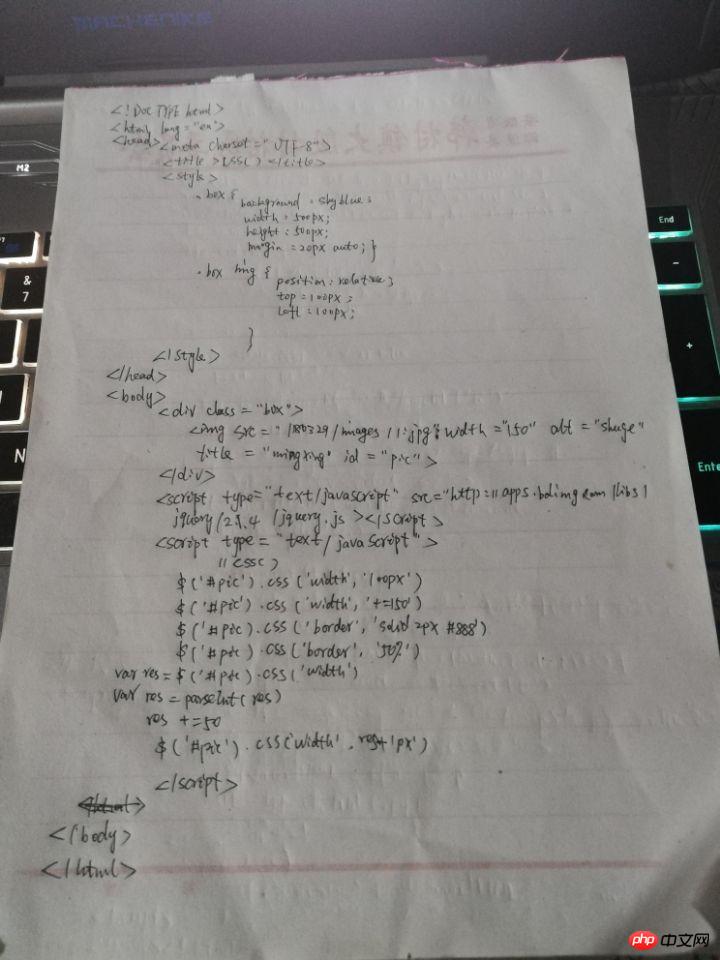 MACHENIKE
<!DOC TYPE html>
<html lang="en">
<head><meta charset="UTF-8">
<title>CSS()</title>
<style>
.box{
background:skyblue;
width:500px;
height:500px;
margin:20px auto;}
.box img{
position:relative;
top:100px;
left:100px;
}
</style>
</head>
<body>
<div class="box">
<img src="/180329/images/1.jpg" width="150" alt="shuge"
title="mingxing" id="pic">
</div>
<script type="text/javascript" src="http://apps.bdimg.com/libs/
jquery/2.1.4/jquery.js></script>
<script type="text/javascript">
//css()
$('#pic').css('width','100px')
$('#pic').css('width','+=150')
$('#pic').css('border','solid 2px #888')
$('#pic').css('border','50%')
var res=$('#pic').css('width')
var res=parseInt(res)
res +=50
$('#pic').css('width',res+'px')
</script>
</body>
</html>
M2
&
7
N
End
-
+
Ente
php 中文网